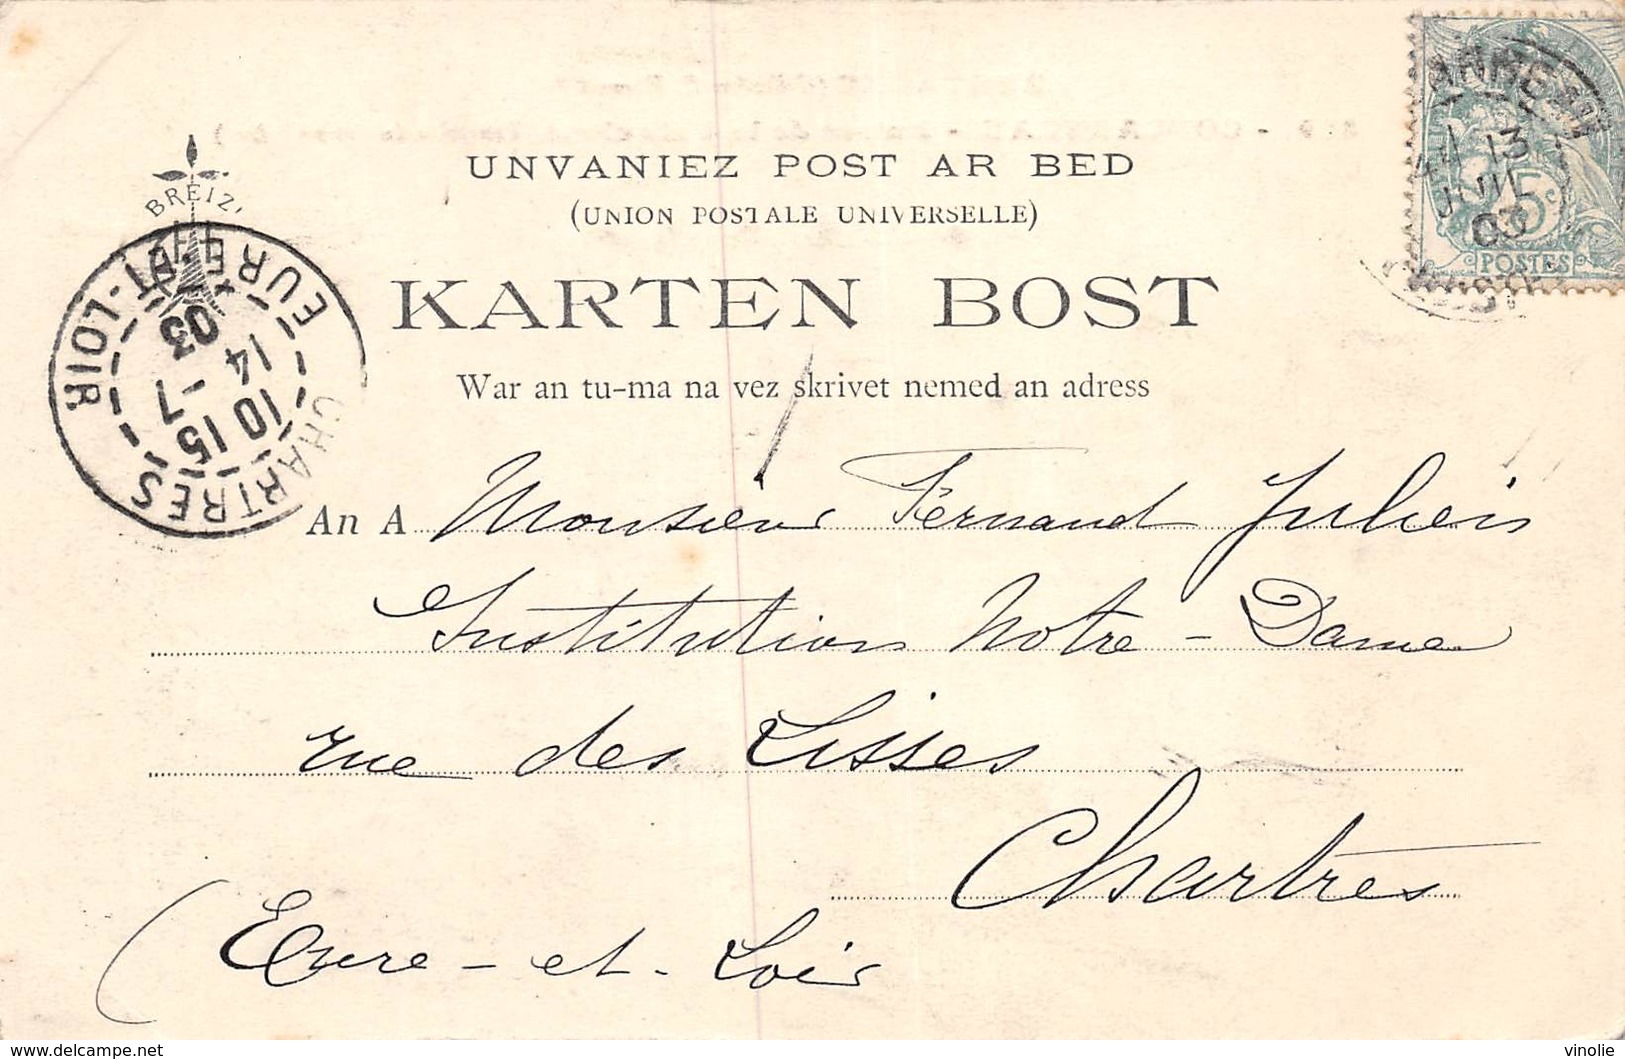 UNVANIEZ POST AR BED
(UNION POSTALE UNIVERSELLE)
KARTEN BOST
War an tu-ma na vez skrivet nemed an adress
BREIZ
CHARTRES
EURE-ET-LOIR
10 15
14 -7
03
13
JUIL
03
5c
POSTES
An A Monsieur Fernand Julien
Institution Notre-Dame
rue des Lisses
Chartres
(Eure-et-Loir
delcampe.net
vinolie